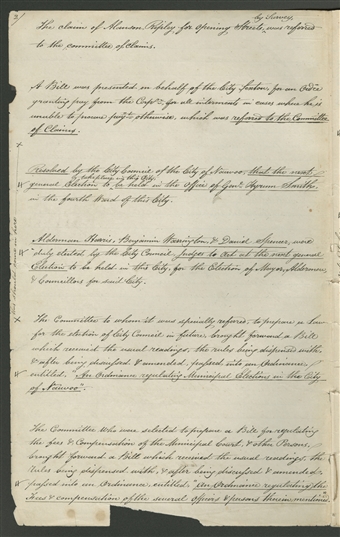 by Survey,
The claim of Alanson Ripley for opening Streets, was referred
to the committee of claims.
A Bill was presented in behalf of the City Sexton, for an Order
granting pay from the Corpn. for all interments in cases where he is
unable to procure paymt. otherwise, which was referred to the Committee
of Claims.
Resolved by the City Council of the City of Nauvoo, that the next
general Election to be held in the office of Genl. Hyrum Smith's.
in the fourth Ward of this City.
Alderman Harris, Benjamin Warrington, & Daniel Spencer, were
duly elected by the City Council, Judges to Act at the next general
Election to be held in this City, for the Election of Mayor, Aldermen,
& Councillors for said City.
The Committee to whom it was specially referred, to prepare a law
for the election of City Council in future, brought forward a Bill
which received the usual readings, the rules being dispensed with,
& after being discussed & amended, passed into an Ordinance,
entitled "An Ordinance regulating Municipal Elections in the City
of Nauvoo".
The Committee who were selected to prepare a Bill for regulating
the fees & Compensation of the Municipal Court, & other Persons,
brought forward a Bill which received the usual readings, the
rules being dispensed with, & after being discussed & amended,
passed into an Ordinance, entitled "An Ordinance regulating the
Fees & compensation of the several officers & persons therein mentioned